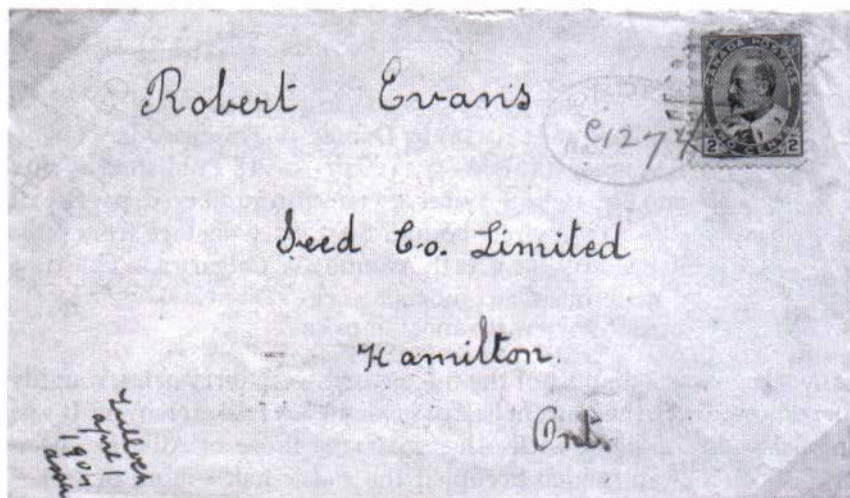 Robert Evans
C1274
CANADA POSTAGE
2 TWO CENTS 2
Seed Co. Limited
Hamilton.
Ont.
Tulloch
april 1